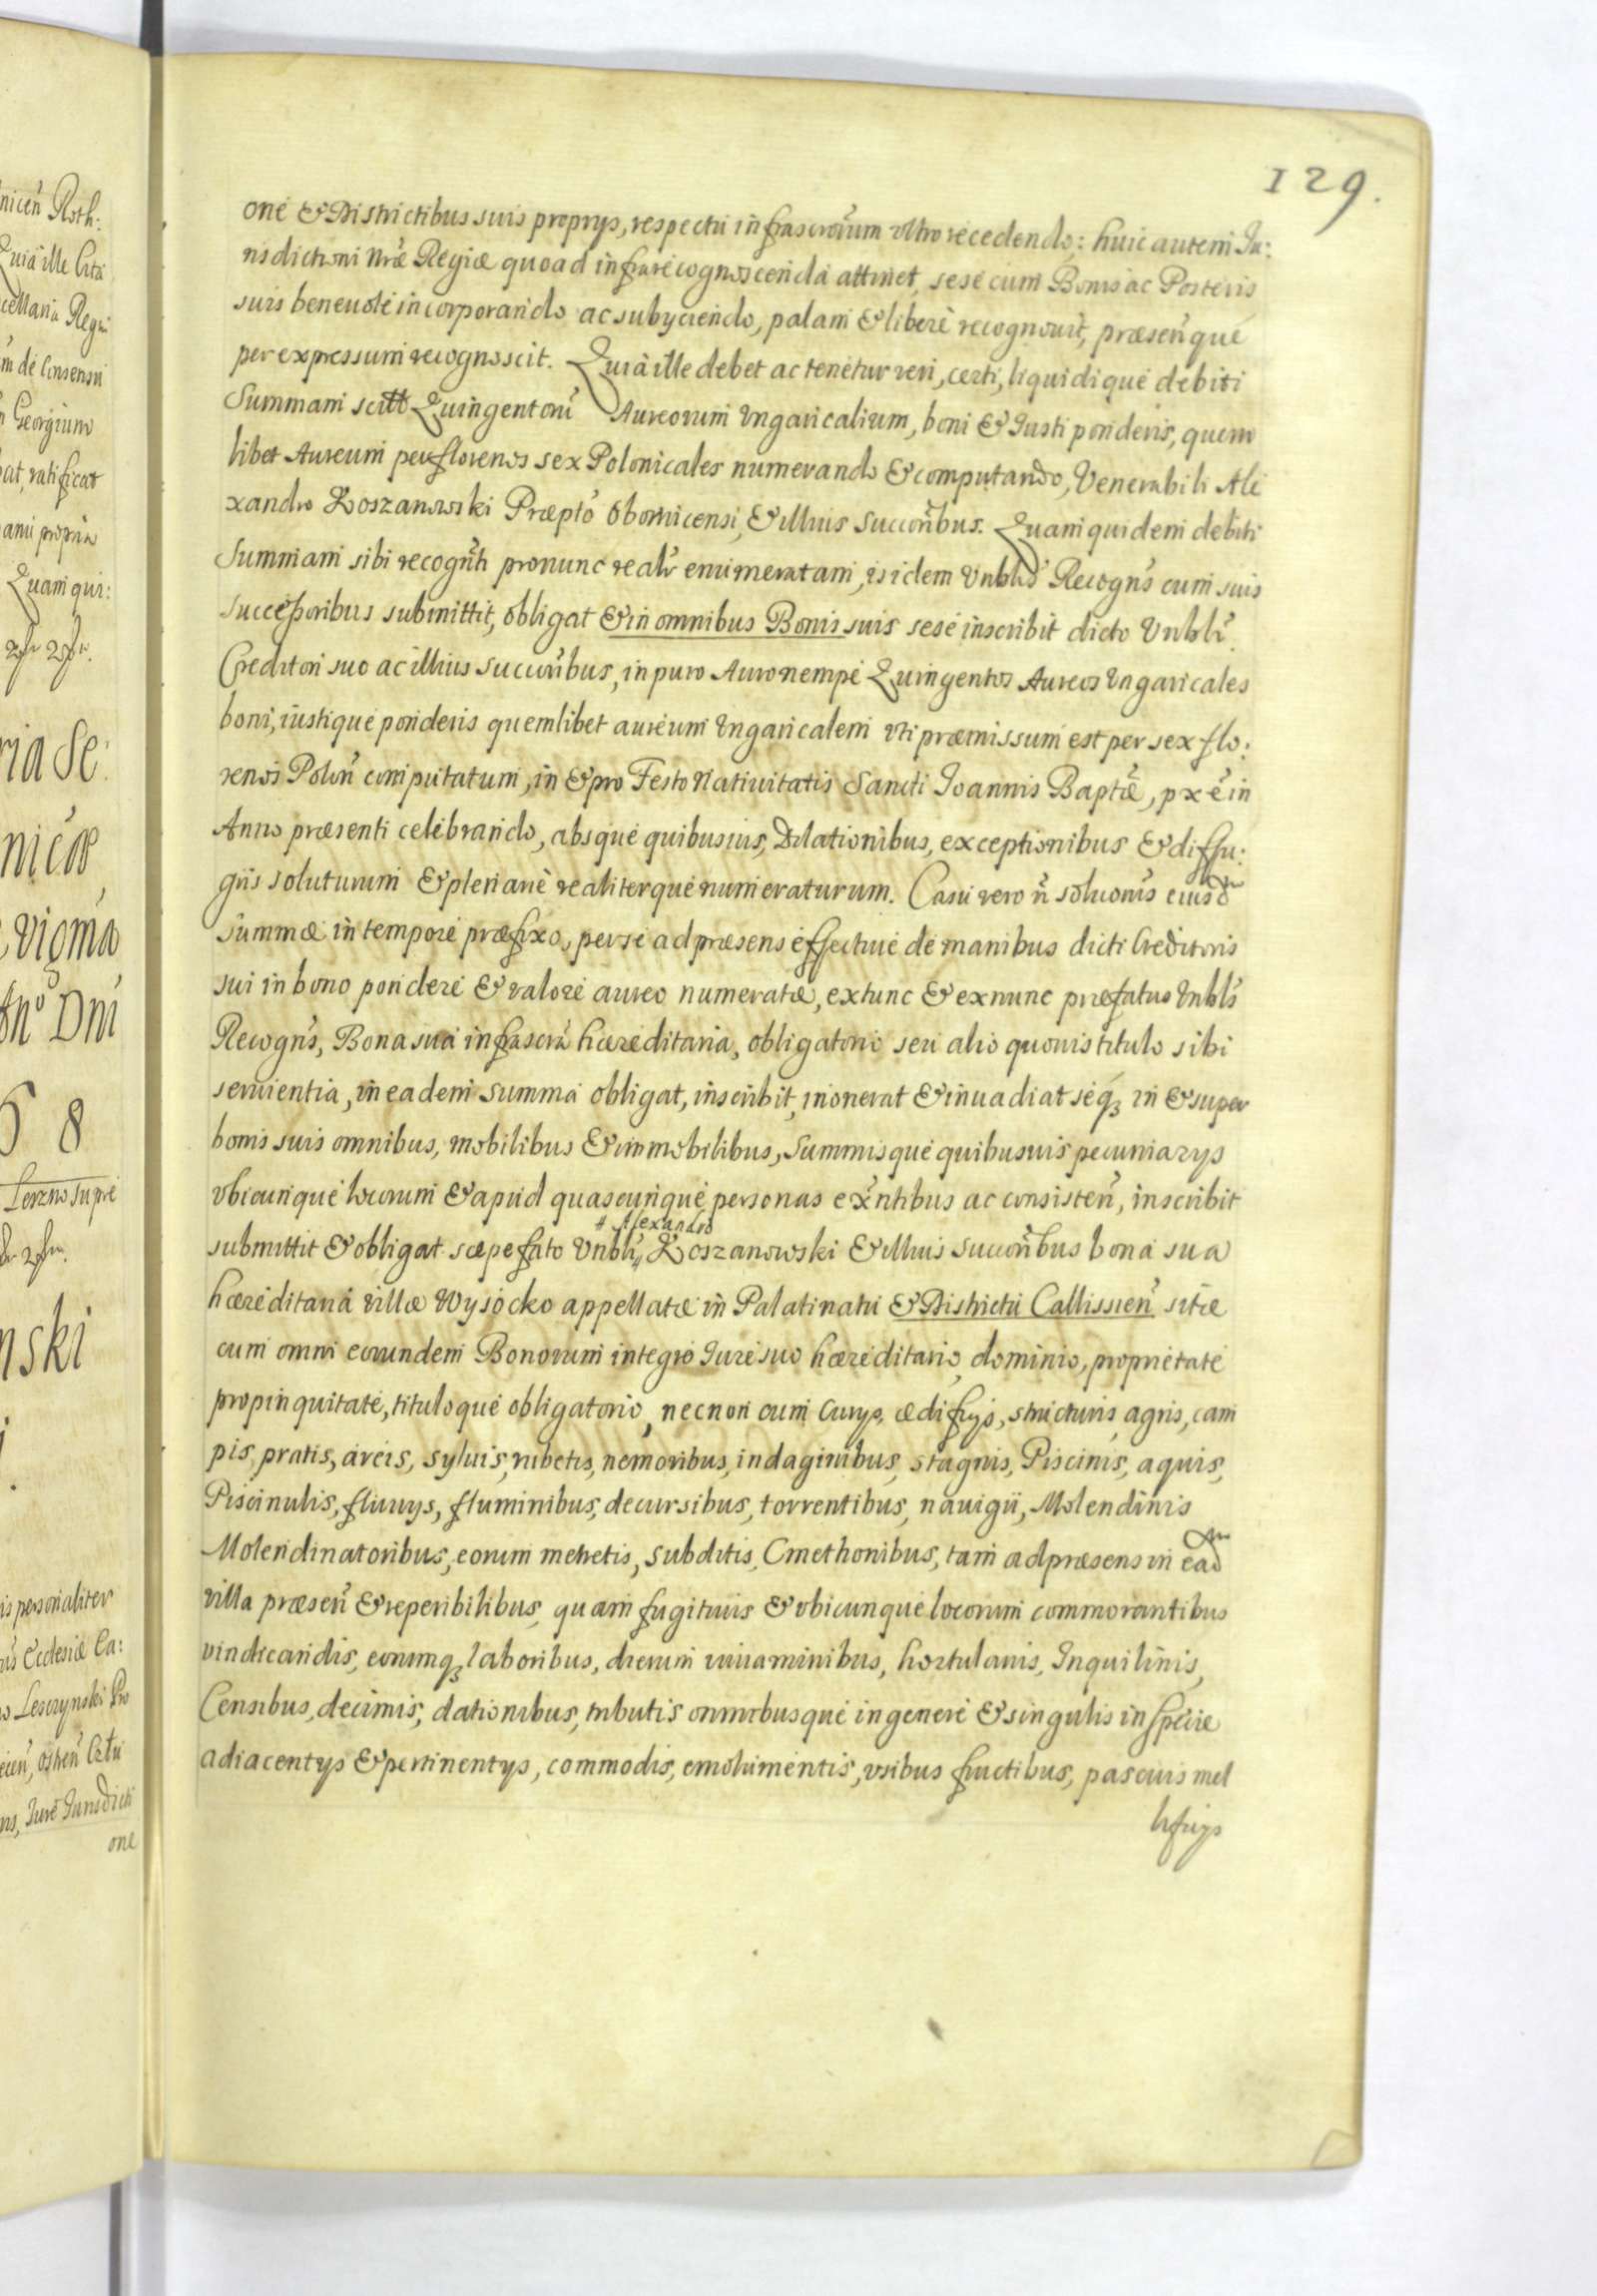 129.
one & Districtibus suis proprys, respectu infrascrorum vltro recedendo: huic autem Iu:
risdictioni nrae Regiae quoad infrarecognoscenda attinet, sese cum Bonis ac Posteris
suis beneuole incorporando ac subyciendo, palam & libere recognouit, praesenque
per expressum recognoscit. Quia ille debet ac tenetur veri, certi, liquidique debiti
Summam scilt Quingentoru Aureorum Vngaricalium, boni & Iusti ponderis, quem
libet Aureum per florenos sex Polonicales numerando & computando, Venerabili Ale
xandro Koszanowski Praepto Obornicensi, & illius succoribus. Quam quidem debiti
Summam sibi recognti pronunc realr enumeratam, isidem Vnblis Recogns cum suis
successoribus submittit, obligat & in omnibus Bonis suis sese inscribit dicto Vnbli
Creditori suo ac illius succoribus, in puro Auro nempe Quingentos Aureos Vngaricales
boni, iustique ponderis quemlibet aureum Vngaricalem vti praemissum est per sex flo:
renos Polon computatum, in & pro Festo Natiuitatis Sancti Ioannis Baptae, pxe in
Anno praesenti celebrando, absque quibusuis, Dilationibus, exceptionibus & diffu:
giis soluturum & plenarie realiterque numeraturum. Casu vero n soluonis eiusd
summae in tempore praefixo, per se ad praesens effectiue de manibus dicti Creditoris
sui in bono pondere & valore aureo numeratae, extunc & exnunc praefatus Vnbls
Recogns, Bona sua infrascra haereditaria, obligatorio seu alio quouis titulo sibi
seruientia, in eadem summa obligat, inscribit, inonerat & inuadiat seq; in & super
bonis suis omnibus, mobilibus & immobilibus, Summisque quibusuis pecuniarys
vbicunque locorum & apud quascunque personas exntibus ac consisten, inscribit
# Alexandro
submittit & obligat saepefato Vnbli # Koszanowski & illius succoribus bona sua
haereditaria villae Wysocko appellatae in Palatinatu & Districtu Callissien sitae
cum omni eorundem Bonorum integro Iure suo haereditario, dominio, proprietate
propinquitate, tituloque obligatorio, necnon cum Curys, aedifcys, structuris, agris, cam
pis, pratis, areis, syluis, rubetis, nemoribus, indaginibus, stagnis, Piscinis, aquis,
Piscinulis, fluuys, fluminibus, decursibus, torrentibus, nauigii, Molendinis
Molendinatoribus, eorum metretis, subditis, Cmethonibus, tam ad praesens in ead
villa praesen & reperibilibus, quam fugitiuis & vbicunque locorum commorantibus
vindicandis, eorumq; laboribus, dierum iuuaminibus, hortulanis, Inquilinis,
Censibus, decimis, dationibus, tributis omnibusque in genere & singulis in specie
adiacentys & pertinentys, commodis, emolumentis, vsibus fructibus, pascuis mel
lificys